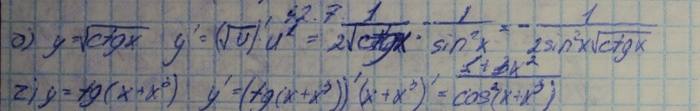 32.7
б) y=√ctgx y'=(√u)'u'=1/(2√ctgx)·1/sin²x=-1/(2sin²x√ctgx)
г) y=tg(x+x³) y'=(tg(x+x³))'(x+x³)'=(1+3x²)/cos²(x+x³)